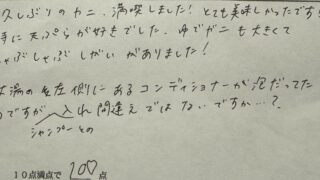 久しぶりのカニ、満喫しました!とても美味しかったです!
に天ぷらが好きでした。ゆでガニも大きくて
しゃぶしゃぶしがいがありました!
湯の左側にあるコンディショナーが泡だってた
のですが 入れ間違えではないですか…?
シャンプーとの
10点満点で 100 点